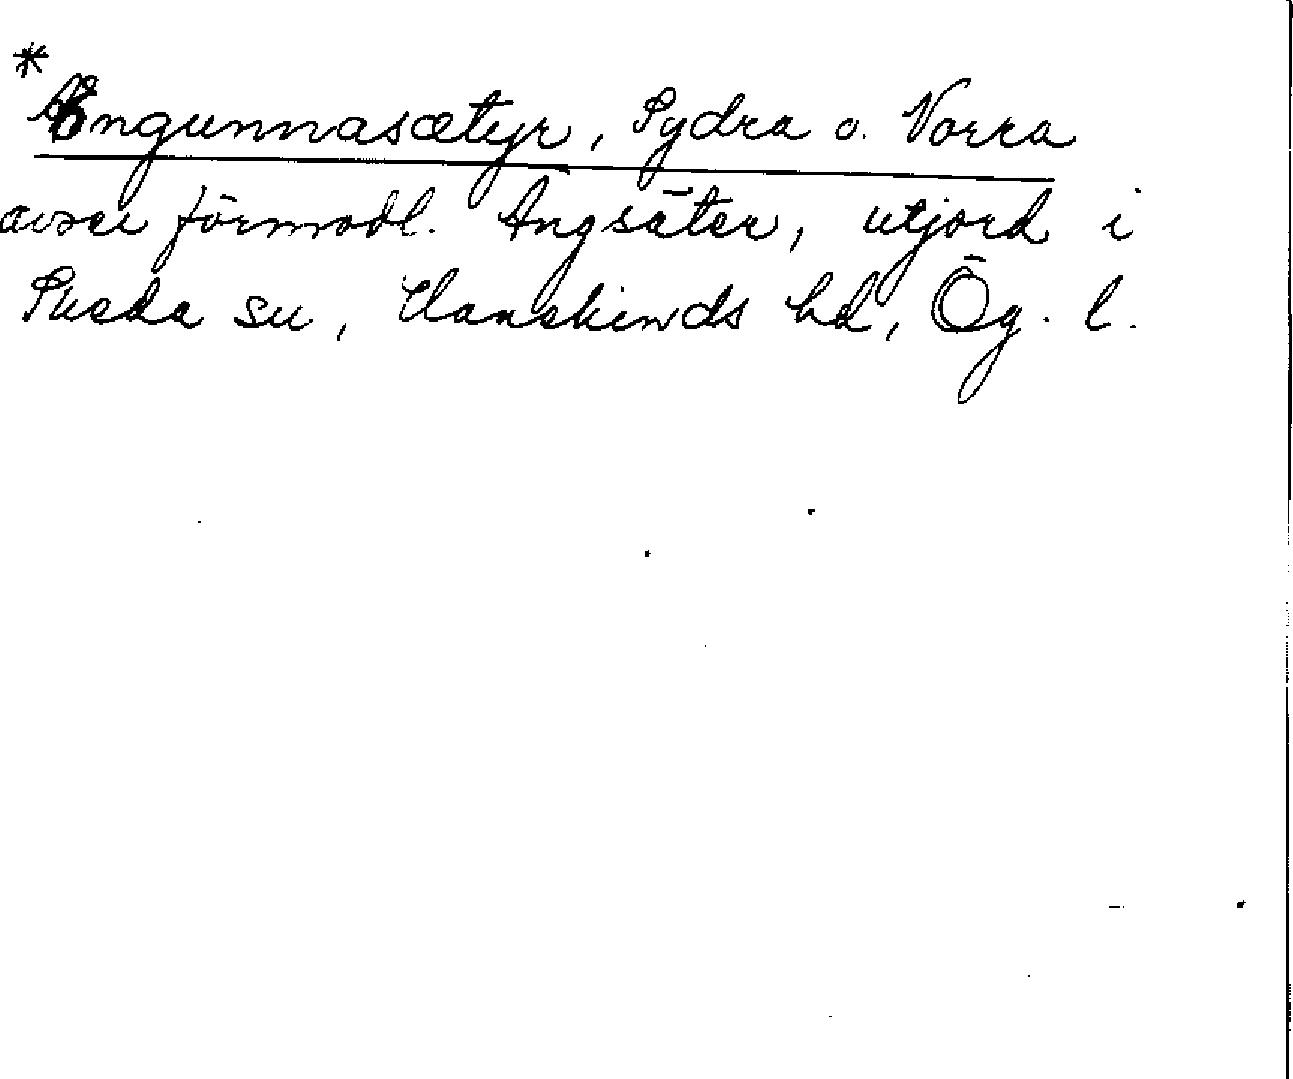 *
Ængunnasætyr, Sydra o. Norra
avser förmodl. Ängsäter, utjord i
Skeda sn, Hanekinds hd, Ög. l.